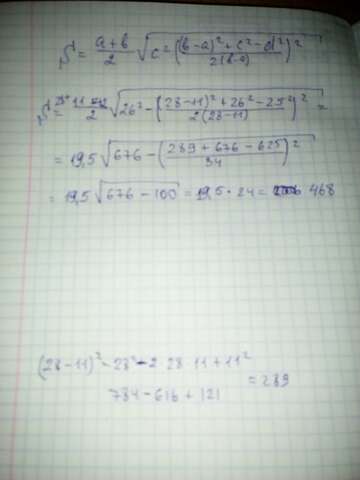 S = a+b/2 √c = ((b-a)²+c²-d²/2(b-a))²
S = 28+11/2 √26² - ((28-11)²+26²-25²/2(28-11))² =
= 19,5 √676 - (289+676-625/34)²
= 19,5 √676-100 = 19,5 · 24 = 468
(28-11)² - 28² - 2 · 28 · 11 + 11²
784 - 616 + 121 = 289